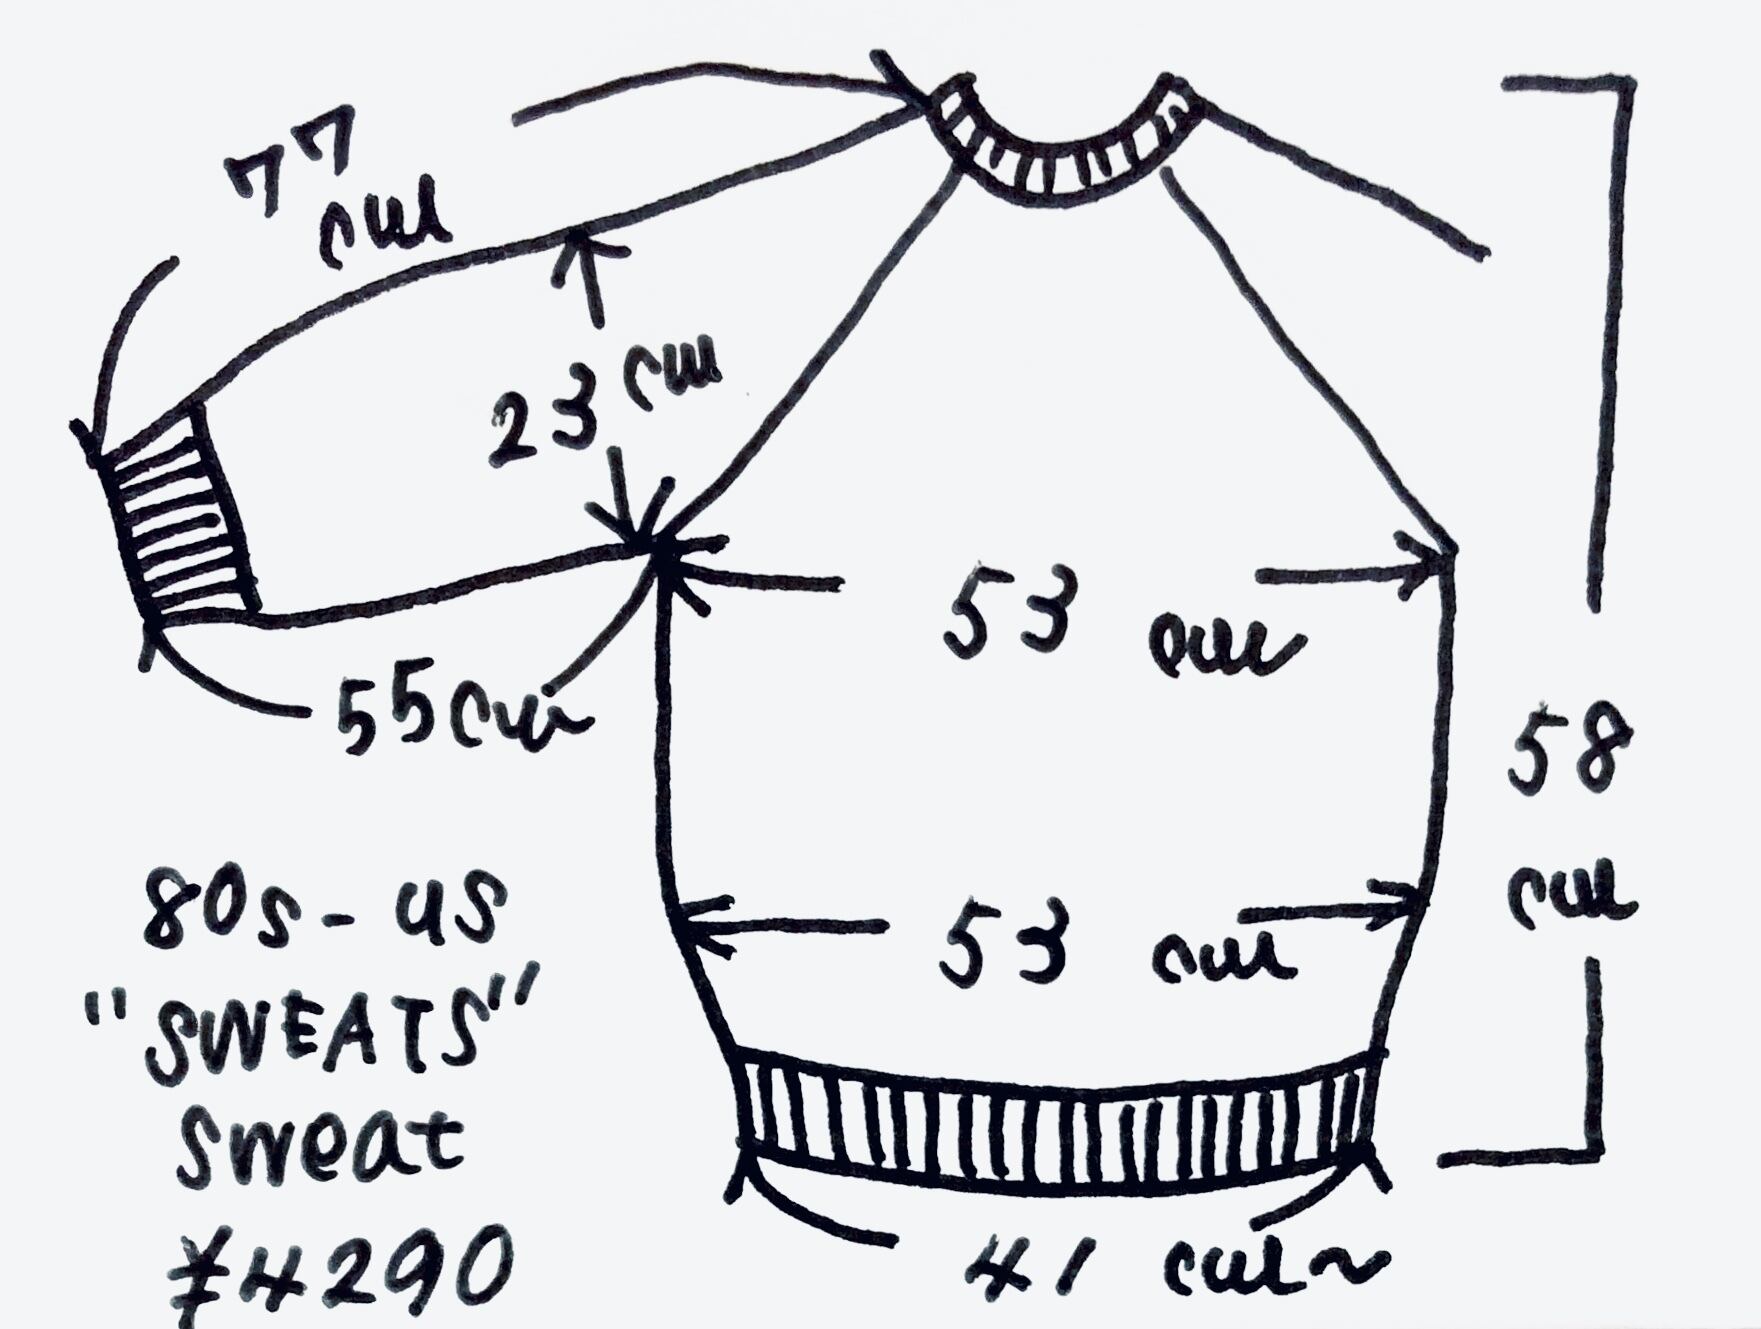 77
cm
23 cm
55cm
53 cm
53 cm
58
cm
41 cm~
80s-US
"SWEATS"
Sweat
¥4290